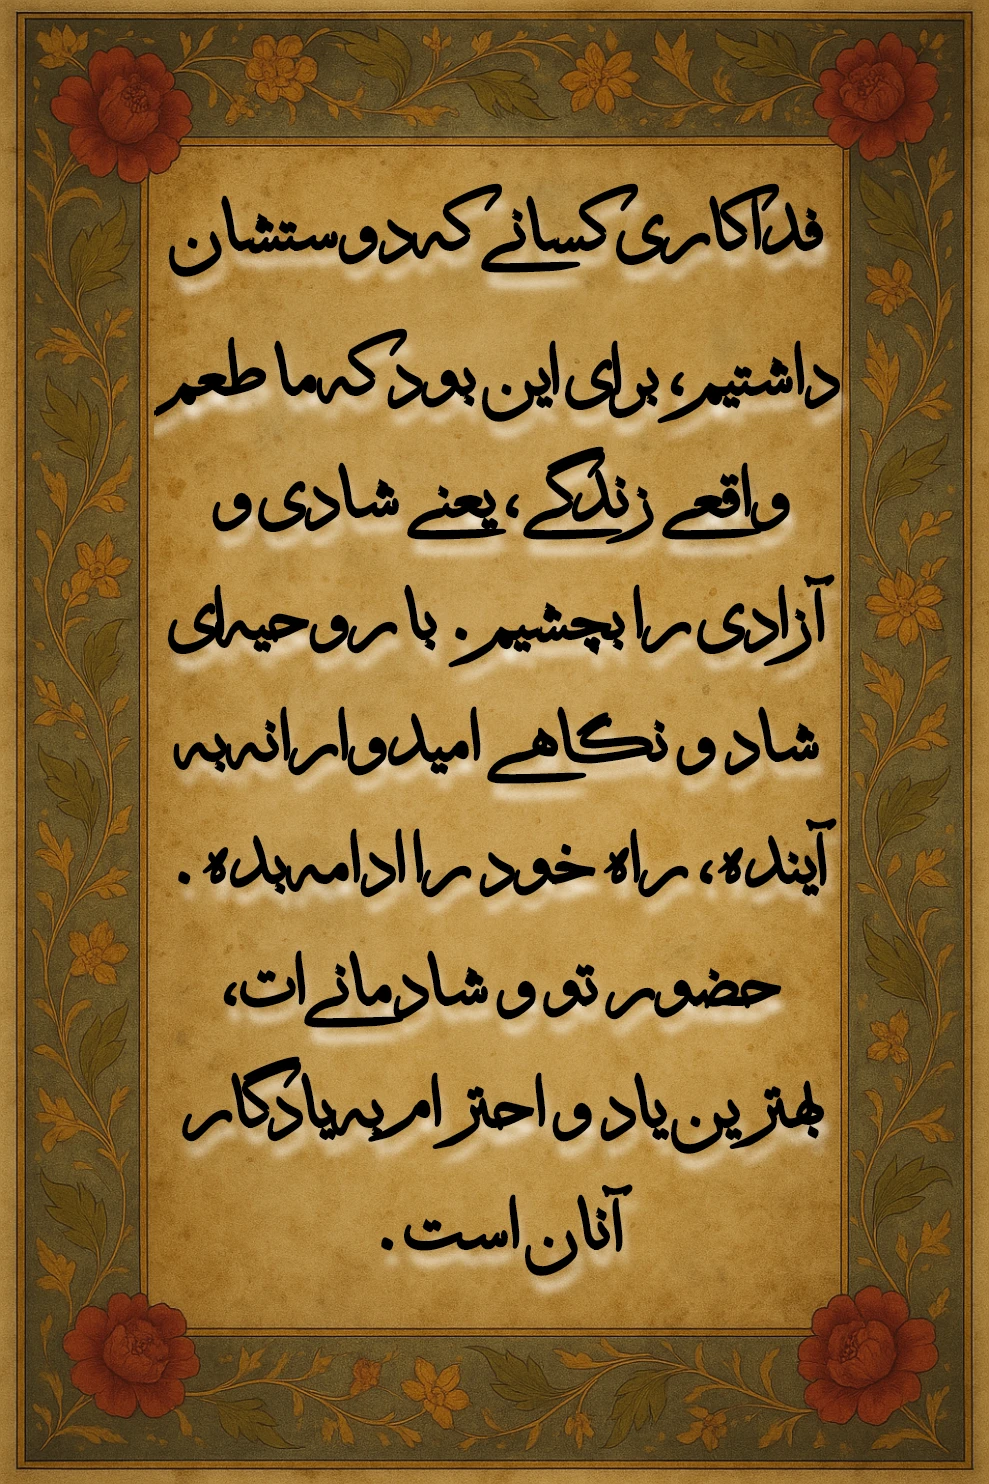 فداکاری کسانی که دوستشان
داشتیم، برای این بود که ما طعم
واقعی زندگی، یعنی شادی و
آزادی را بچشیم. با روحیه‌ای
شاد و نگاهی امیدوارانه به
آینده، راه خود را ادامه بده.
حضور تو و شادمانی‌ات،
بهترین یاد و احترام به یادگار
آنان است.